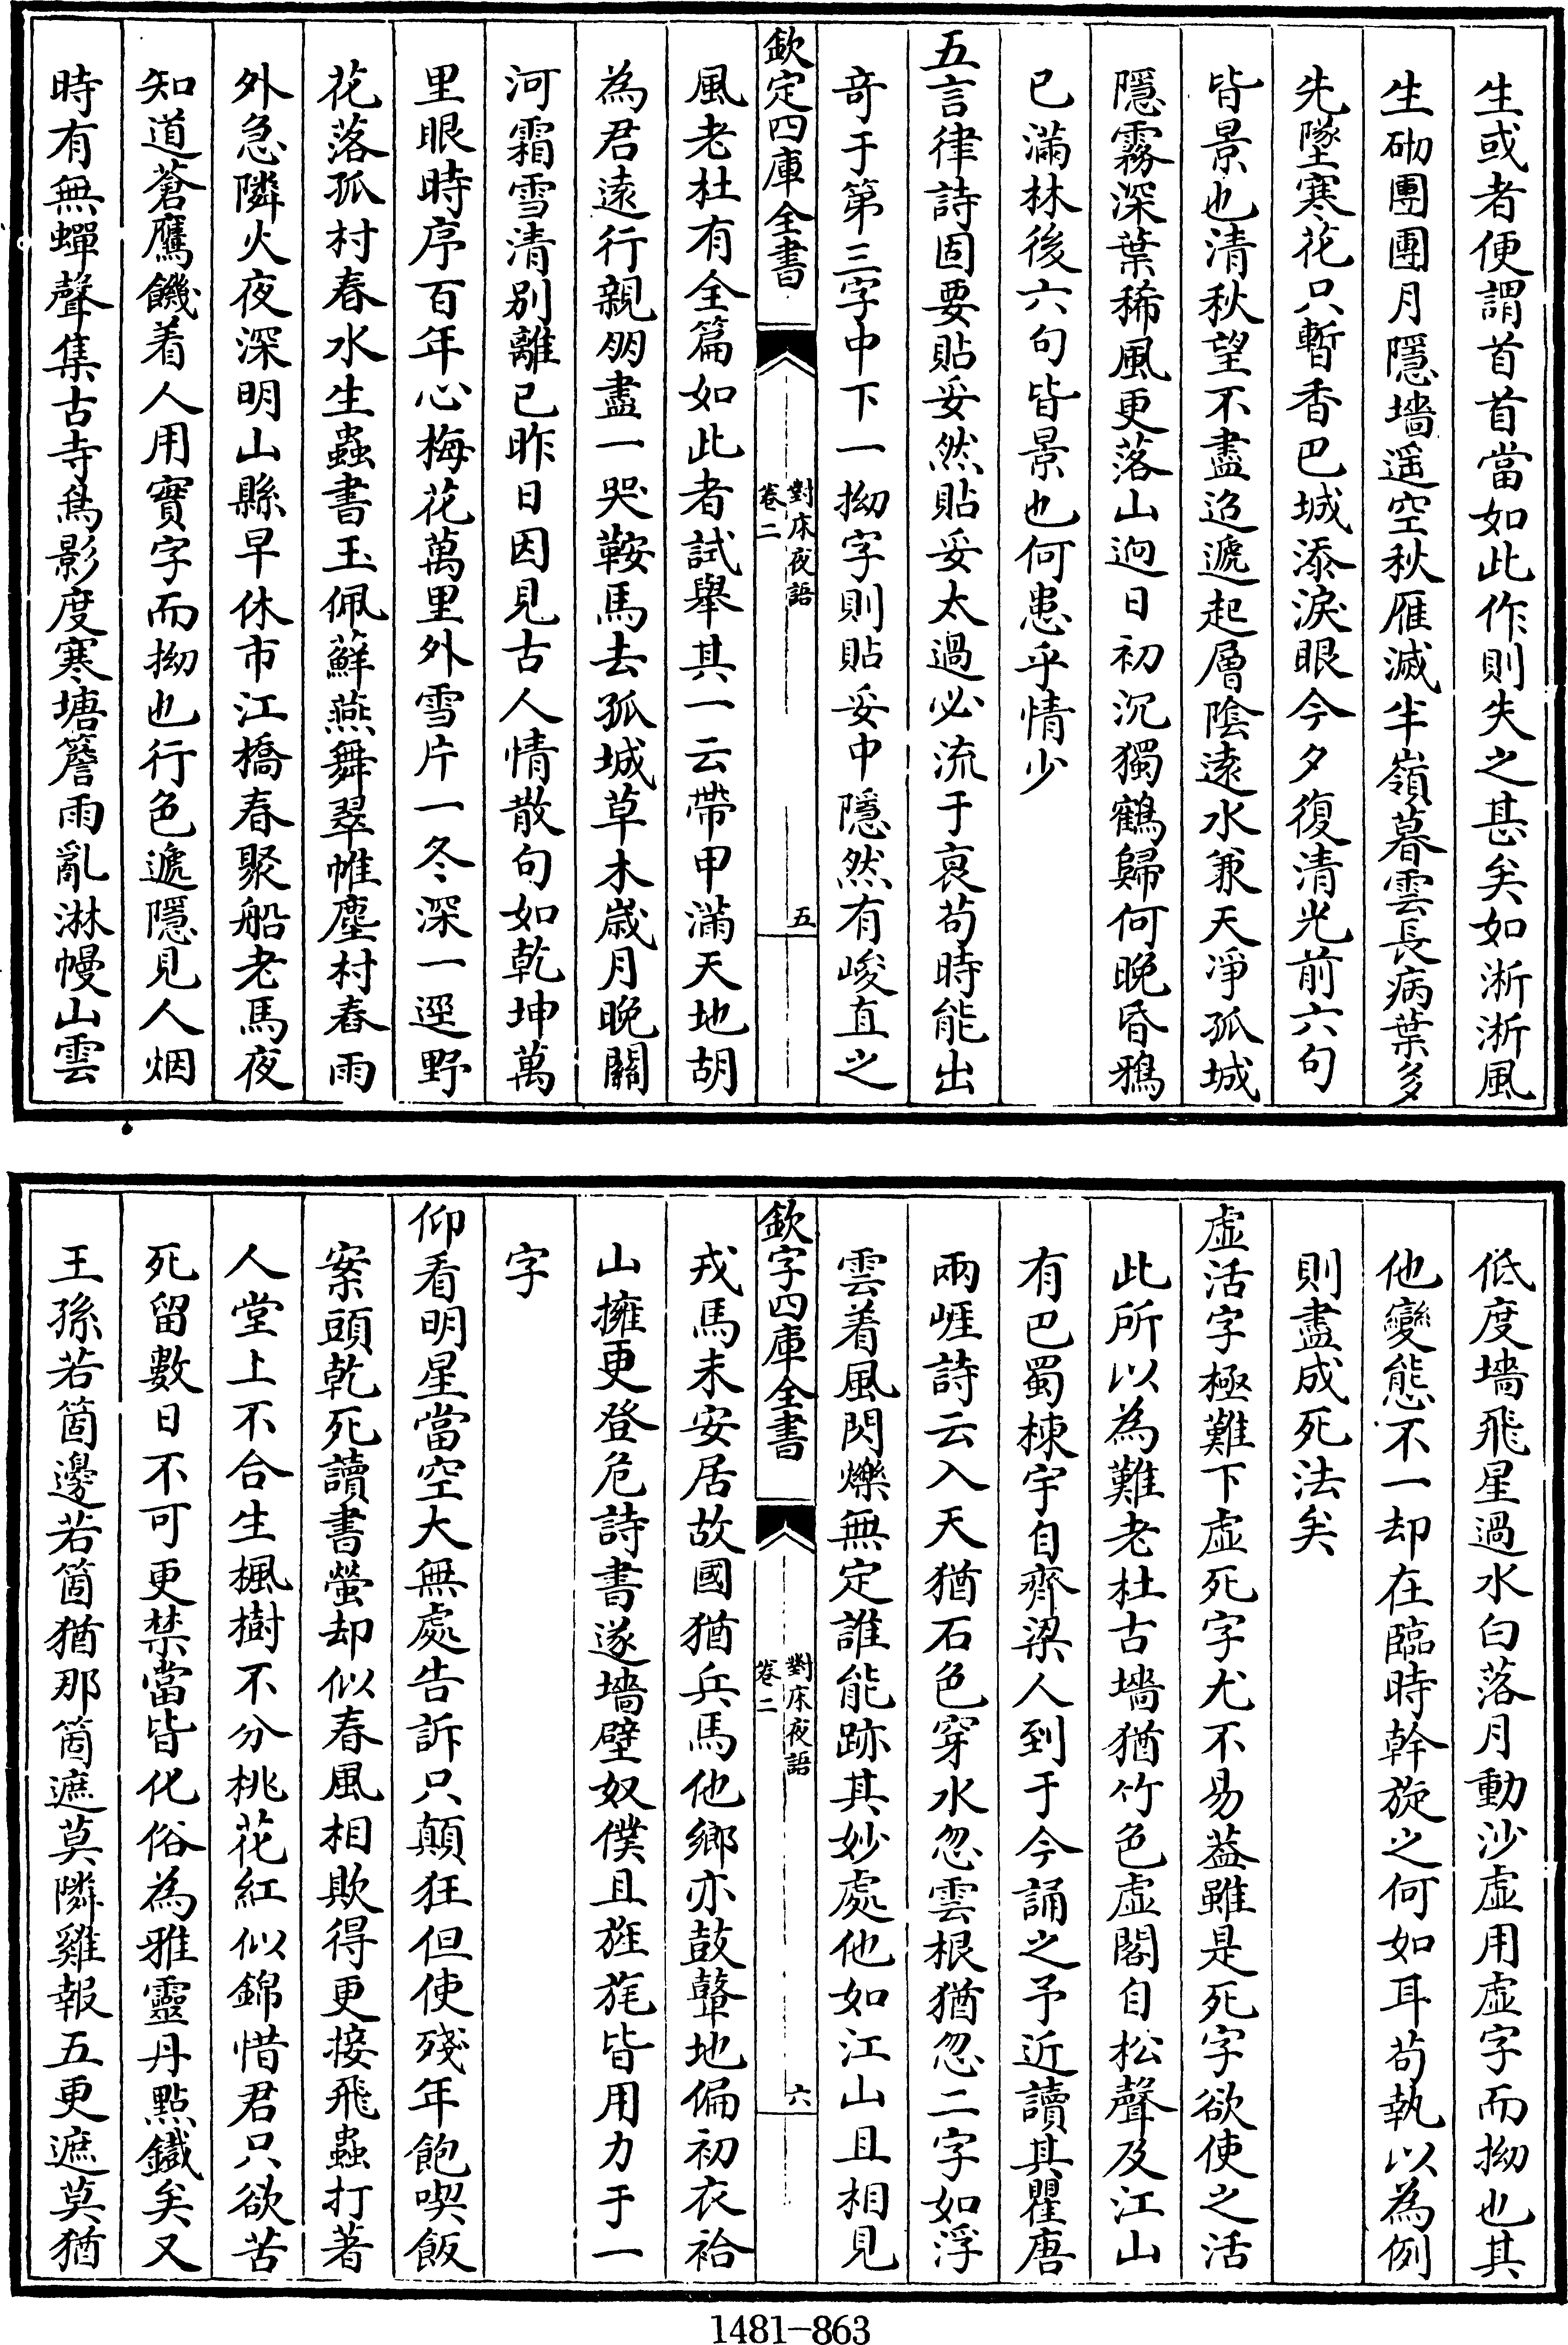 生或者便謂首首當如此作則失之甚矣如淅淅風
生砌團團月隱墻遥空秋雁滅半嶺暮雲長病葉多
先墜寒花只暫香巴城添淚眼今夕復清光前六句
皆景也清秋望不盡迢遞起層陰遠水兼天凈孤城
隱霧深葉稀風更落山逈日初沉獨鶴歸何晚昏鴉
已滿林後六句皆景也何患乎情少
五言律詩固要貼妥然貼妥太過必流于衰苟時能出
竒于第三字中下一拗字則貼妥中隱然有峻直之
欽定四庫全書
對床夜語
卷二
五
風老杜有全篇如此者試舉其一云帶甲滿天地胡
為君遠行親朋盡一哭鞍馬去孤城草木嵗月晚關
河霜雪清别離已昨日因見古人情散句如乾坤萬
里眼時序百年心梅花萬里外雪片一冬深一逕野
花落孤村春水生蟲書玉佩蘚燕舞翠帷塵村舂雨
外急隣火夜深明山縣早休市江橋春聚船老馬夜
知道蒼鷹饑着人用實字而拗也行色遞隱見人烟
時有無蟬聲集古寺鳥影度寒塘簷雨亂淋幔山雲
低度墻飛星過水白落月動沙虛用虛字而拗也其
他變態不一却在臨時斡旋之何如耳茍執以為例
則盡成死法矣
虛活字極難下虛死字尤不易葢雖是死字欲使之活
此所以為難老杜古墻猶竹色虛閣自松聲及江山
有巴蜀棟宇自齊梁人到于今誦之予近讀其瞿唐
兩崕詩云入天猶石色穿水忽雲根猶忽二字如浮
雲着風閃爍無定誰能跡其妙處他如江山且相見
欽字四庫全書
對床夜語
卷二
六
戎馬未安居故國猶兵馬他鄉亦鼓鼙地偏初衣袷
山擁更登危詩書遂墻壁奴僕且旌旄皆用力于一
字
仰看明星當空大無處告訴只顛狂但使殘年飽喫飯
案頭乾死讀書螢却似春風相欺得更接飛蟲打著
人堂上不合生楓樹不分桃花紅似錦惜君只欲苦
死留數日不可更禁當皆化俗為雅靈丹點鐡矣又
王孫若箇邊若箇猶那箇遮莫隣雞報五更遮莫猶
1481-863